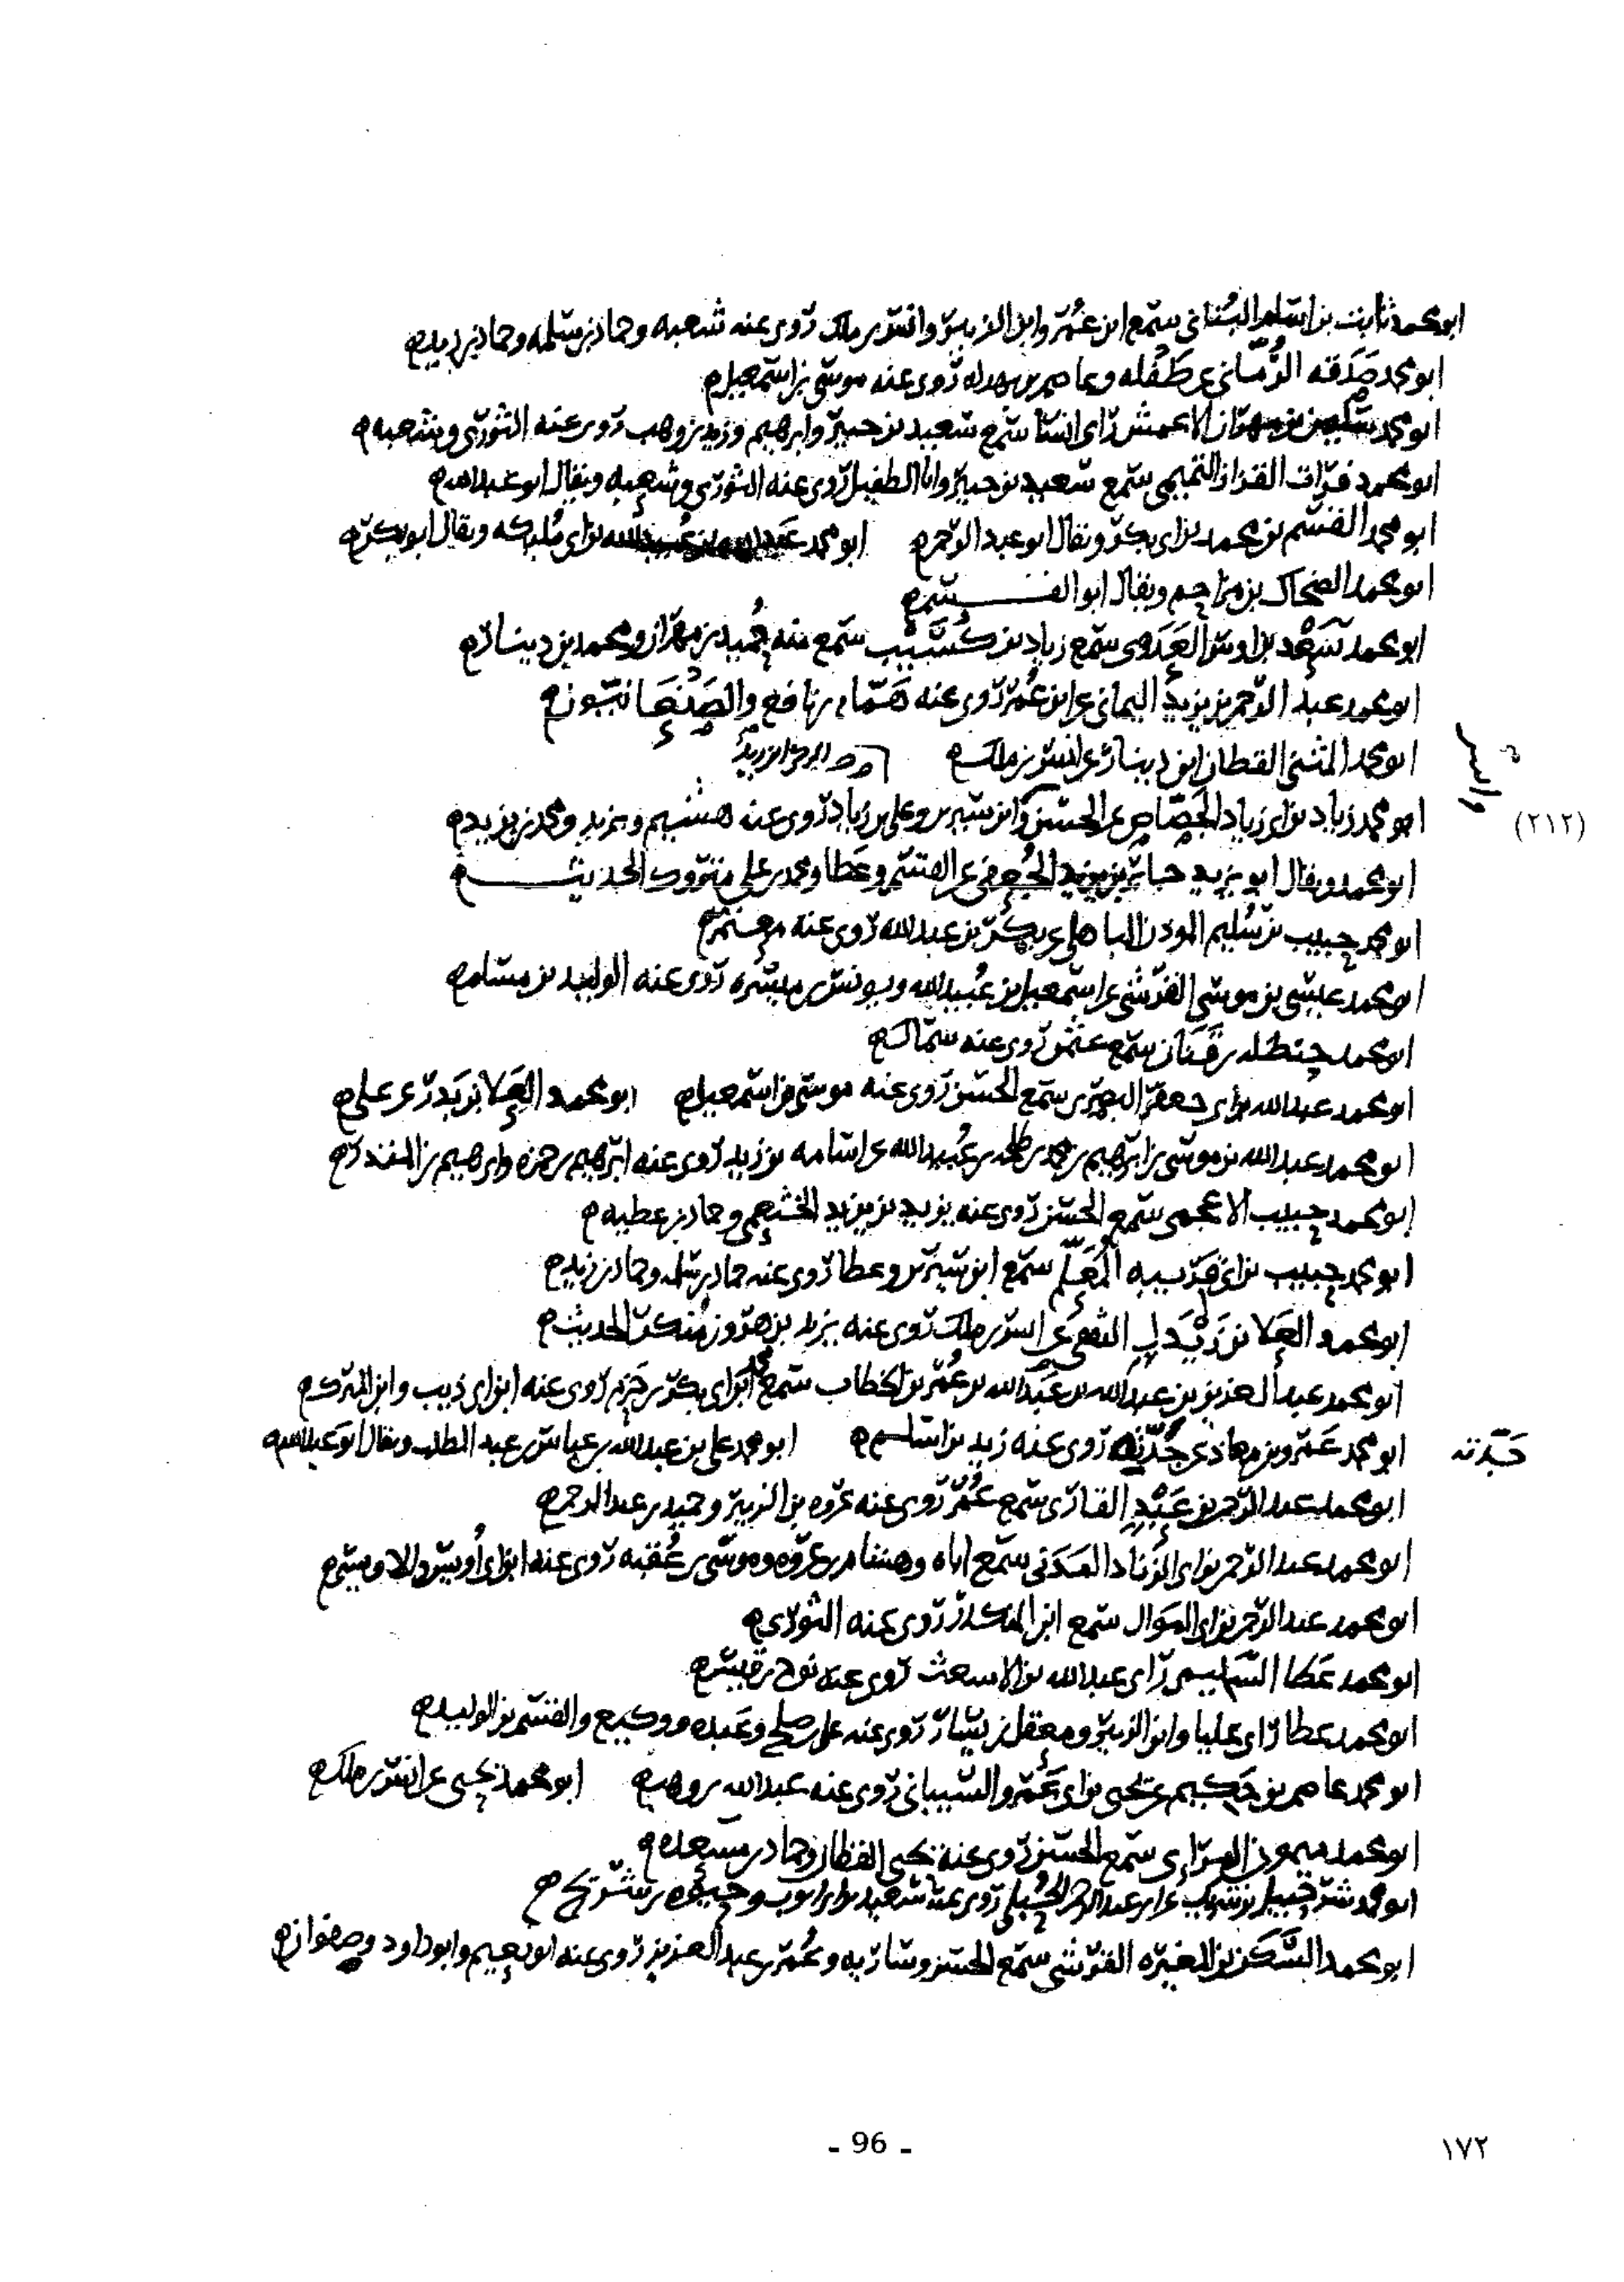 ابو محمد ثابت بن اسلم البُناني سمع ابن عُمر وابن الزبير وانس بن ملك روى عنه شعبه وحماد بن سلمه وحماد بن زيد ه
ابو محمد صَدَقه الرُّماني عن طَفْله وعاصم بن بهدله روى عنه موسى بن اسمعيل ه
ابو محمد سليمن بن مهران الاعمش راى انسا سمع سعيد بن جبير وابرهيم وزيد بن وهب روى عنه الثوري وشعبه ه
ابو محمد فرات القزاز التميمي سمع سعيد بن جبير وابا الطفيل روى عنه الثوري وشعبه ويقال ابو عبد الله ه
ابو محمد القسم بن محمد بن ابي بكر ويقال ابو عبد الرحمن ه ابو محمد عبد الله بن عُبيد الله بن ابي مُليكه ويقال ابو بكر ه
ابو محمد الضحاك بن مزاحم ويقال ابو القسم ه
ابو محمد سَعْد بن اوس العَدَوي سمع زياد بن كُسَيْب سمع منه حُميد بن مهران ومحمد بن دينار ه
ابو محمد عبد الرحمن بن يزيد اليماني عن ابن عُمر روى عنه هَمّام بن نافع والصَنْعَانيون ه
ابو محمد المثنى القطان ابن دينار عن انس بن ملك ه
ابو محمد زياد بن ابي زياد الجَصّاص عن الحسن وابن سيرين وعلي بن زياد روى عنه هشيم ويزيد ومحمد بن يزيد ه
والنس
(٢١٢)
ابو محمد ويقال ابو يزيد جابر بن يزيد الجُعفي عن القسم وعَطا ومحمد بن علي متروك الحديث ه
ابو محمد حبيب بن سُليم الموذن الباهلي عن بكر بن عبد الله روى عنه معتمر ه
ابو محمد عيسى بن موسى القُرشي عن اسمعيل بن عُبيد الله ويونس بن ميسَره روى عنه الوليد بن مسلم ه
ابو محمد حنظله بن قَنان سمع عثمن روى عنه سماك ه
ابو محمد عبد الله بن ابي جعفر البصري سمع الحسن روى عنه موسى بن اسمعيل ه ابو محمد العَلا بن بَدر عن علي ه
ابو محمد عبد الله بن موسى بن ابرهيم بن محمد بن طلحه بن عُبيد الله عن اسامه بن زيد روى عنه ابرهيم بن حمزه وابرهيم بن المنذر ه
ابو محمد حبيب الاعجمي سمع الحسن روى عنه يزيد بن يزيد الخثعمي وحماد بن عطيه ه
ابو محمد حبيب بن ابي قريبه المُعَلّم سمع ابن سيرين وعطا روى عنه حماد بن سلمه وحماد بن زيد ه
ابو محمد العَلا بن زَيْدَل الثقفي عن انس بن ملك روى عنه يزيد بن هرون مُنكر الحديث ه
ابو محمد عبد العزيز بن عبد الله بن عَبد الله بن عُمر بن الخطاب سمع ابن ابي بكر بن حَزم روى عنه ابن ابي ذيب وابن المبرك ه
ابو محمد عَمرو بن معاذ عن جَدّته روى عنه زيد بن اسلم ه ابو محمد علي بن عبد الله بن عباس بن عبد المطلب ويقال ابو عبد الله
جَدّته
ابو محمد عبد الرحمن بن عَبْدٍ القاري سمع عُمر روى عنه عروه بن الزبير وحميد بن عبد الرحمن ه
ابو محمد عبد الرحمن بن ابي الزناد المدني سمع اباه وهشام بن عروه وموسى بن عُقبه روى عنه ابن ابي أُويس والاويسي ه
ابو محمد عبد الرحمن بن ابي الموَال سمع ابن المنكدر روى عنه الثوري ه
ابو محمد عَطا السَّلِيمي راى عبد الله بن الاشعث روى عنه نوح بن قيس ه
ابو محمد عطا راى عليا وابن الزبير ومعقل بن يسار روى عنه علي بن صلح وعَبده ووكيع والقسم بن الوليد ه
ابو محمد عاصم بن حَكيم عن يحيى بن ابي عَمرو السيباني روى عنه عبد الله بن وهب ه ابو محمد يحيى عن انس بن ملك ه
ابو محمد ميمون المَرَاى سمع الحسن روى عنه يحيى القطان وحماد بن مسعده ه
ابو محمد شرحبيل بن شريك عن ابي عبد الرحمن الحُبلي روى عنه سعيد بن ابي ايوب وحيوه بن شريح ه
ابو محمد السَّكَن بن المغيره القرشي سمع الحسن وساربه وعُمر بن عبد العزيز روى عنه ابو نعيم وابو داود وصفوان ه
- 96 -
١٧٢